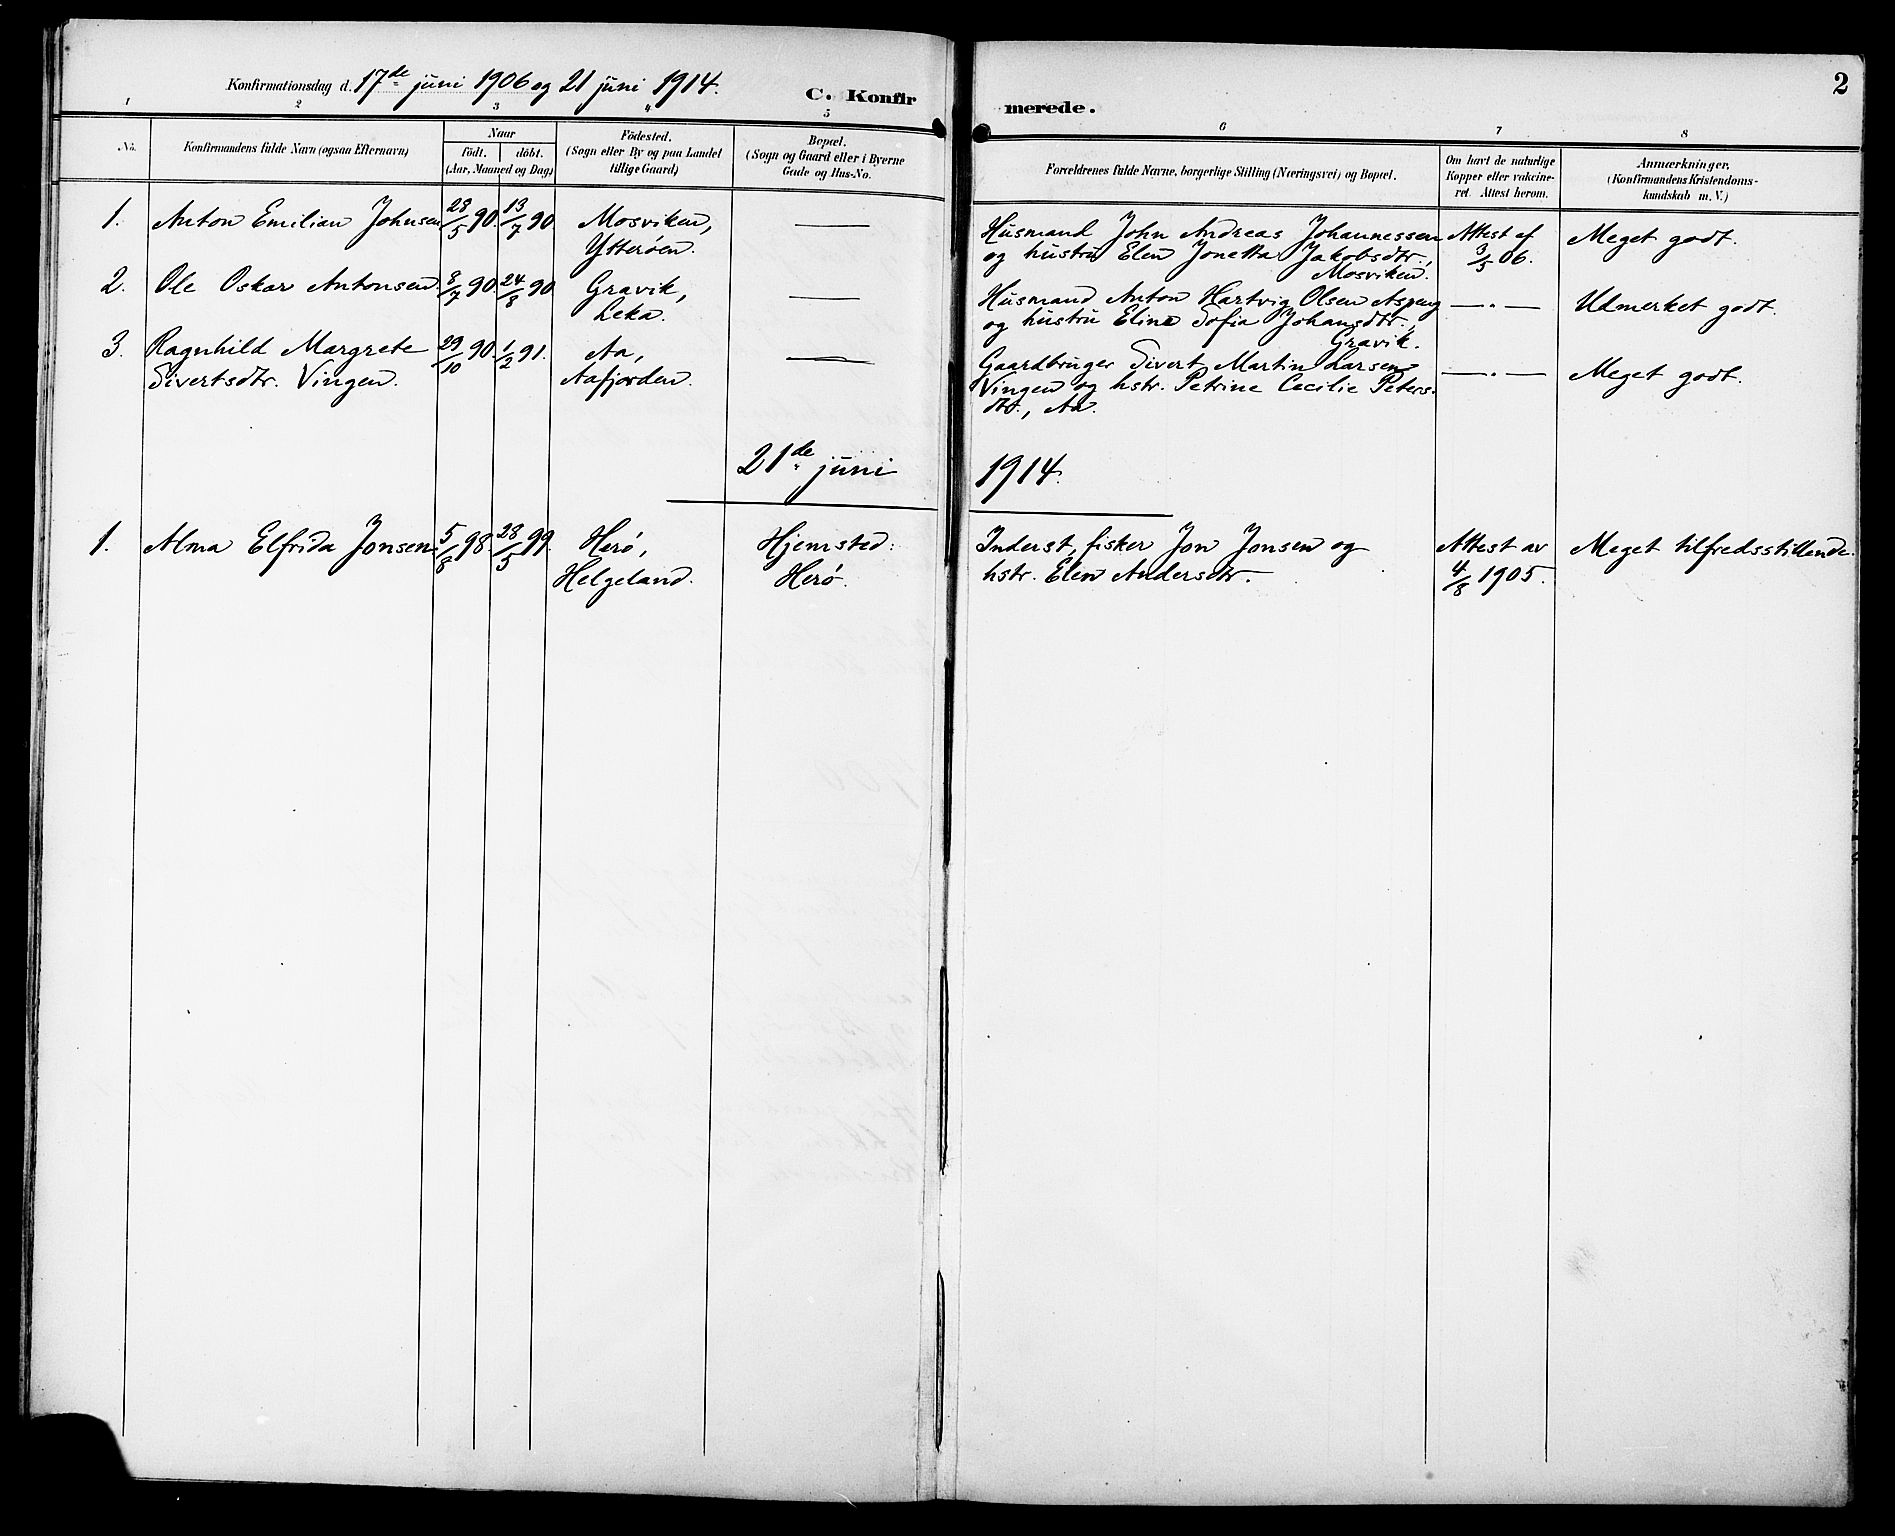 Konfirmationsdag d. 17de juni 1906 og 21 juni 1914. C. Konfir merede. 2
1 2 3 4 5 6 7 8
No.
Konfirmandens fulde Navn (ogsaa Efternavn)
Naar
födt. döbt.
(Aar, Maaned og Dag)
Födested.
(Sogn eller By og paa Landet
tillige Gaard)
Bopæl.
(Sogn og Gaard eller i Byerne
Gade og Hus-No.
Forældrenes fulde Navne, borgerlige Stilling (Næringsvei) og Bopæl.
Om havt de naturlige
Kopper eller vakcine-
ret. Attest herom.
Anmærkninger,
(Konfirmandens Kristendoms-
kundskab m. V.)
1. Anton Emilian Johnsen 28/5 90. 13/7 90 Mosviken,
Ytterøen.
—
Husmand John Andreas Johannessen
og hustru Elen Jonetta Jakobsdtr.,
Mosviken.
Attest af
3/5 06.
Meget godt.
2. Ole Oskar Antonsen. 8/7 90. 24/8 90 Gravik,
Leka.
—
Husmand Anton Hartvig Olsen Aspeng
og hustru Elina Sofia Johansdtr.,
Gravik.
— " —
Udmerket godt.
3. Ragnhild Margrete
Sivertsdtr. Vingen.
29/10 90. 1/2 91.
Aa,
Aafjorden.
—
Gaardbruger Sivert Martin Larsen
Vingen og hstr. Petrine Cecilie Peters-
dtr., Aa.
— " —
Meget godt.
21de juni 1914.
1. Alma Elfrida Jonsen. 5/8 98. 28/5 99. Herø,
Helgeland.
Hjemsted:
Herø.
Inderst, fisker Jon Jonsen og
hstr. Elen Andersdtr.
Attest av
4/8 1905.
Meget tilfredsstillende.